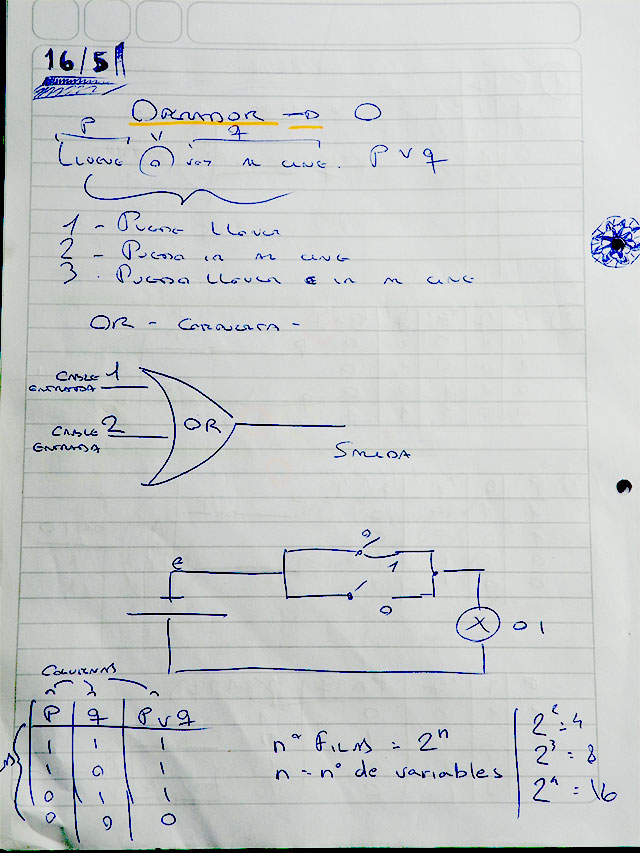 16/5
OPERADOR → O
P v q
LLUEVE O VOY AL CINE. P v q
1 - PUEDE LLOVER
2 - PUEDO IR AL CINE
3. PUEDA LLOVER E IR AL CINE
OR - COMPUERTA -
CABLE 1
ENTRADA
OR
CABLE 2
ENTRADA
SALIDA
0
e
1
0
X 0 1
COLUMNAS
P q P v q
1 1 1
1 0 1
0 1 1
0 0 0
nº FILAS = 2ⁿ
n = nº de variables
2² = 4
2³ = 8
2⁴ = 16